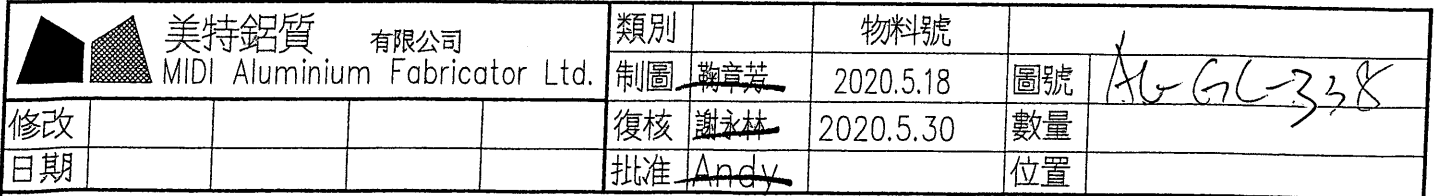 美特鋁質 有限公司
MIDI Aluminium Fabricator Ltd.
類別 物料號
制圖 鞠章芳 2020.5.18 圖號 AG-GL-338
修改 復核 謝永林 2020.5.30 數量
日期 批准 Andy 位置